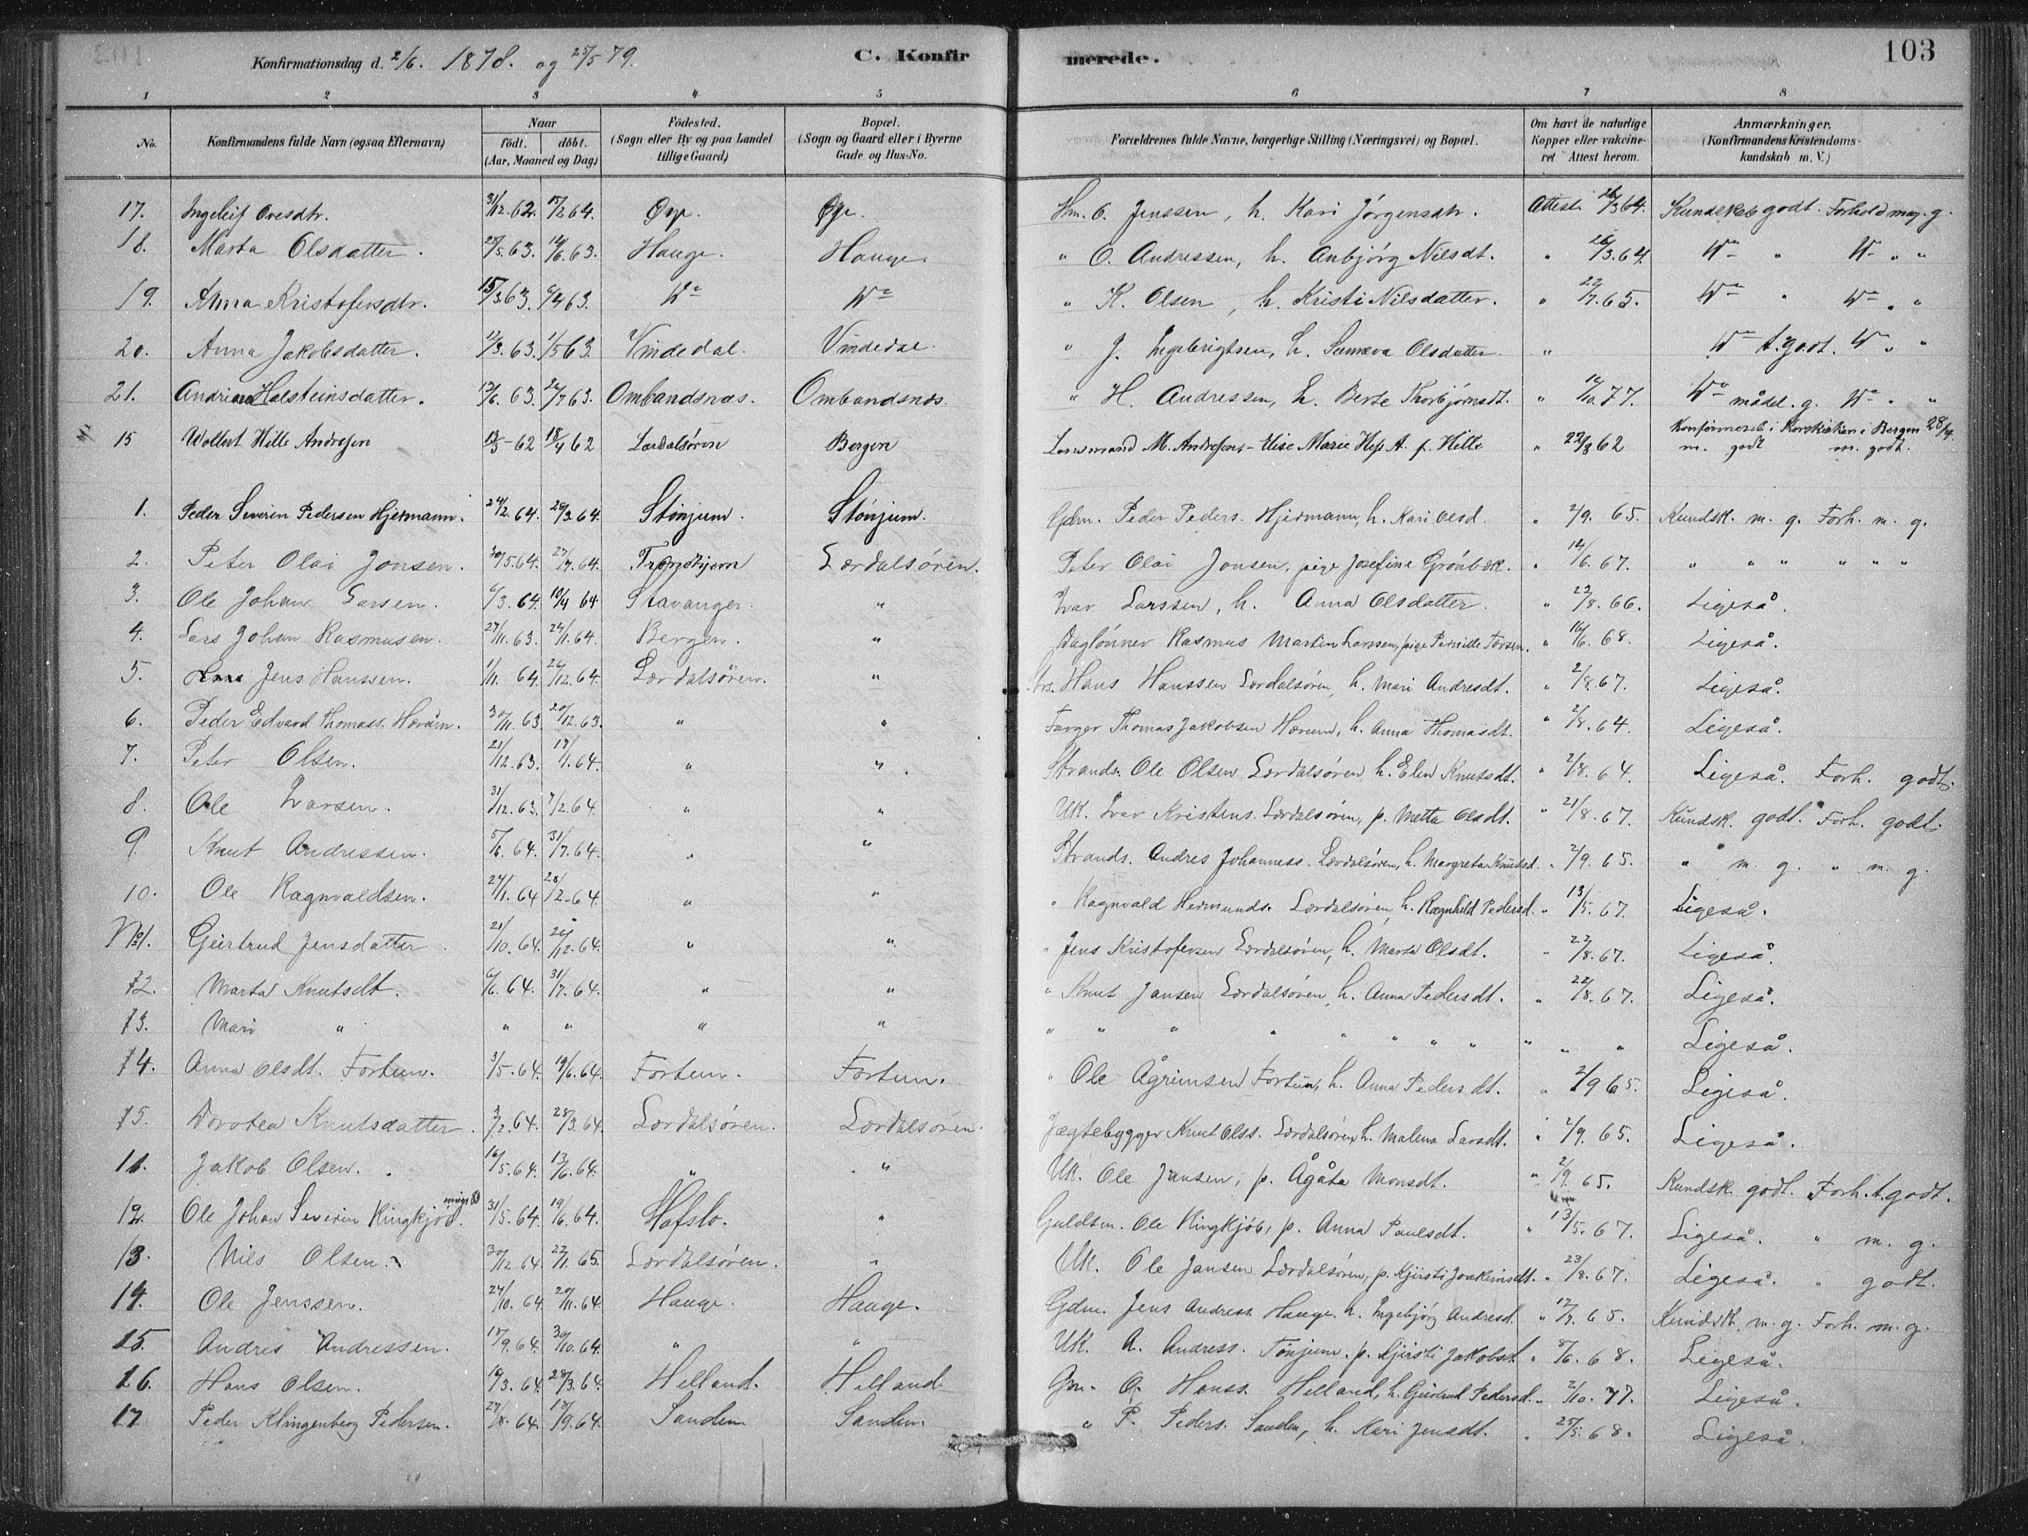 Konfirmationsdag d. 2/6. 1878. og 25/5 79. C. Konfirmerede. 103
1 2 3 4 5 6 7 8
No. Konfirmandens fulde Navn (ogsaa Efternavn) Naar født. døbt. (Aar, Maaned og Dag) Fødested. (Sogn eller By og paa Landet tillige Gaard) Bopæl. (Sogn og Gaard eller i Byerne Gade og Hus-No. Forældrenes fulde Navne, borgerlige Stilling (Næringsvei) og Bopæl. Om havt de naturlige Kopper eller vakcineret Attest herom. Anmærkninger. (Konfirmandens Kristendomskundskab m. V.)
17. Ingeleif Ovesdtr. 31/12.62. 15/2 64. Øye. Øye. Hm. O. Jenssen, h. Kari Jørgensdtr. Attest 26/3 64. Kundskab godt. Forhold meg. g.
18. Marta Olsdatter. 25/5.63. 14/6.63. Hauge. Hauge. " O. Andressen, h. Anbjørg Nilsdt. " 26/3.64. Do " Do " "
19. Anna Kristofersdtr. 15/3 63. 6/4 63. Do Do " K. Olsen, h. Kristi Nilsdatter. " 29/7.65. Do " Do " "
20. Anna Jakobsdatter. 12/3.63. 1/5 63. Vindedal. Vindedal. " J. Ingebrigtsen, h. Sunneva Olsdatter. " Do t. godt. Do " "
21. Andrine Halsteinsdatter. 13/6.63. 26/7 63. Ombandsnæs. Ombandsnæs. " H. Andressen, h. Berte Thorbjørnsdt. " 19/10 77. Do mådel. g. Do " "
15 Wollert Hille Andresen 13/3-62 18/4 62 Lærdalsøren Bergen Lensmand M. Andresen - Elise Marie Hess A. f. Hille " 22/8 62 Konfirmeret i Korskirken i Bergen 28/4. m. godt m. godt.
1. Peder Severin Pedersen Hjermann. 24/2.64. 28/3 64. Stønjum. Stønjum. Gdm. Peder Peders. Hjermann, h. Kari Olsd. " 2/9. 65. Kundsk. m. g. Forh. m. g.
2. Peter Olai Jonsen. 30/5.64. 27/7 64. Trondhjem Lærdalsøren. Peter Olai Jonsen, pige Josefine Grønbæk. " 14/6.67. " " " " " "
3. Ole Johan Larsen. 6/3.64. 10/4 64 Stavanger. " Ivar Larssen, h. Anna Olsdatter. " 23/8.66. Ligeså.
4. Lars Johan Rasmusen. 27/11.63. 24/1.64. Bergen. " Daglønner Rasmus Martin Larssen, pige Pernille Torsen. " 16/6.68. Ligeså.
5. Jens Hanssen. 1/11. 64 26/12.64. Lærdalsøren. " Strs. Hans Hanssen Lærdalsøren, h. Mari Andresdt. " 2/8.67. Ligeså.
6. Peder Edvard Thomass. Hæram. 30/11.63. 20/12.63. " " Farger Thomas Jakobsen Hærum, h. Anna Thomasdt. " 2/8.64. Ligeså.
7. Peter Olsen. 21/12.63. 17/1.64. " " Strands. Ole Olsen Lærdalsøren, h. Elen Knutsdt. " 2/8.64. Ligeså. Forh. godt.
8. Ole Ivarsen. 31/12.63. 7/2.64. " " Uk. Ivar Kristens. Lærdalsøren, p. Metta Olsdt. " 21/8.67. Kundsk. godt. Forh. godt.
9. Knut Andressen. 5/6.64. 31/7.64. " " Strands. Andres Johanness. Lærdalsøren, h. Margreta Knutsd. " 2/9.65. " m. g. " m. g.
10. Ole Ragnvaldsen. 24/1.64 28/2.64. " " " Ragnvald Hermunds. Lærdalsøren, h. Ragnhild Pedersd. " 13/5.67. Ligeså.
No 1. Geirtrud Jensdatter 21/10.64. 26/12.64. " " " Jens Kristofersen Lærdalsøren, h. Marta Olsdt. " 22/8.67. Ligeså.
12. Marta Knutsdt. 6/6.64. 31/7.64. " " " Knut Jansen Lærdalsøren, h. Anna Pedersdt. " 22/8.67. Ligeså.
13. Mari " " " " " " " " " " " " " " " Ligeså.
14. Anna Olsdt. Fortun. 3/5.64. 19/6.64. Fortun. Fortun. " Ole Ågrimsen Fortun, h. Anna Pedersdt. " 2/9 65. Ligeså.
15. Dorotea Knutsdatter. 3/2.64. 28/3.64. Lærdalsøren. Lærdalsøren. Jægtebygger Knut Olss. Lærdalsøren, h. Malena Larsdt. " 2/9.65. Ligeså.
11. Jakob Olsen. 16/5.64. 13/6.64. " " Uk. Ole Jansen, p. Ågåta Monsdt. " 2/9.65. Kundsk. godt. Forh. t. godt.
12. Ole Johan Severin Ringkjøb. 31/5.64. 19/6.64. Hafslo. " Guldsm. Ole Ringkjøb, p. Anna Paulsdt. " 13/5.67. Ligeså. " m. g.
13. Nils Olsen. 30/12.64. 22/1.65. Lærdalsøren. " Uk. Ole Jansen Lærdalsøren, p. Kjirsti Joakimsdt. " 23/8.67. Ligeså. " godt.
14. Ole Jenssen. 24/10.64. 20/11.64. Hauge. Hauge. Gdm. Jens Andress. Hauge. h. Ingebjørg Andresd. " 12/7.65. Kundsk. m. g. Forh. m. g.
15. Andres Andressen. 18/9.64. 30/10.64. " " Uk. A. Andress. Tønjum. p. Kjirsti Jakobsdt. " 8/6.68. Ligeså.
16. Hans Olsen. 19/3.64. 28/3.64. Helland. Helland Gm. O. Hanss. Helland, h. Geirtrud Pedersd. " 2/10.77. Ligeså.
17 Peder Klingenberg Pedersen. 27/8.64. 18/9.64. Sanden Sanden " P. Peders. Sanden, h. Kari Jensdt. " 25/5.68. Ligeså.